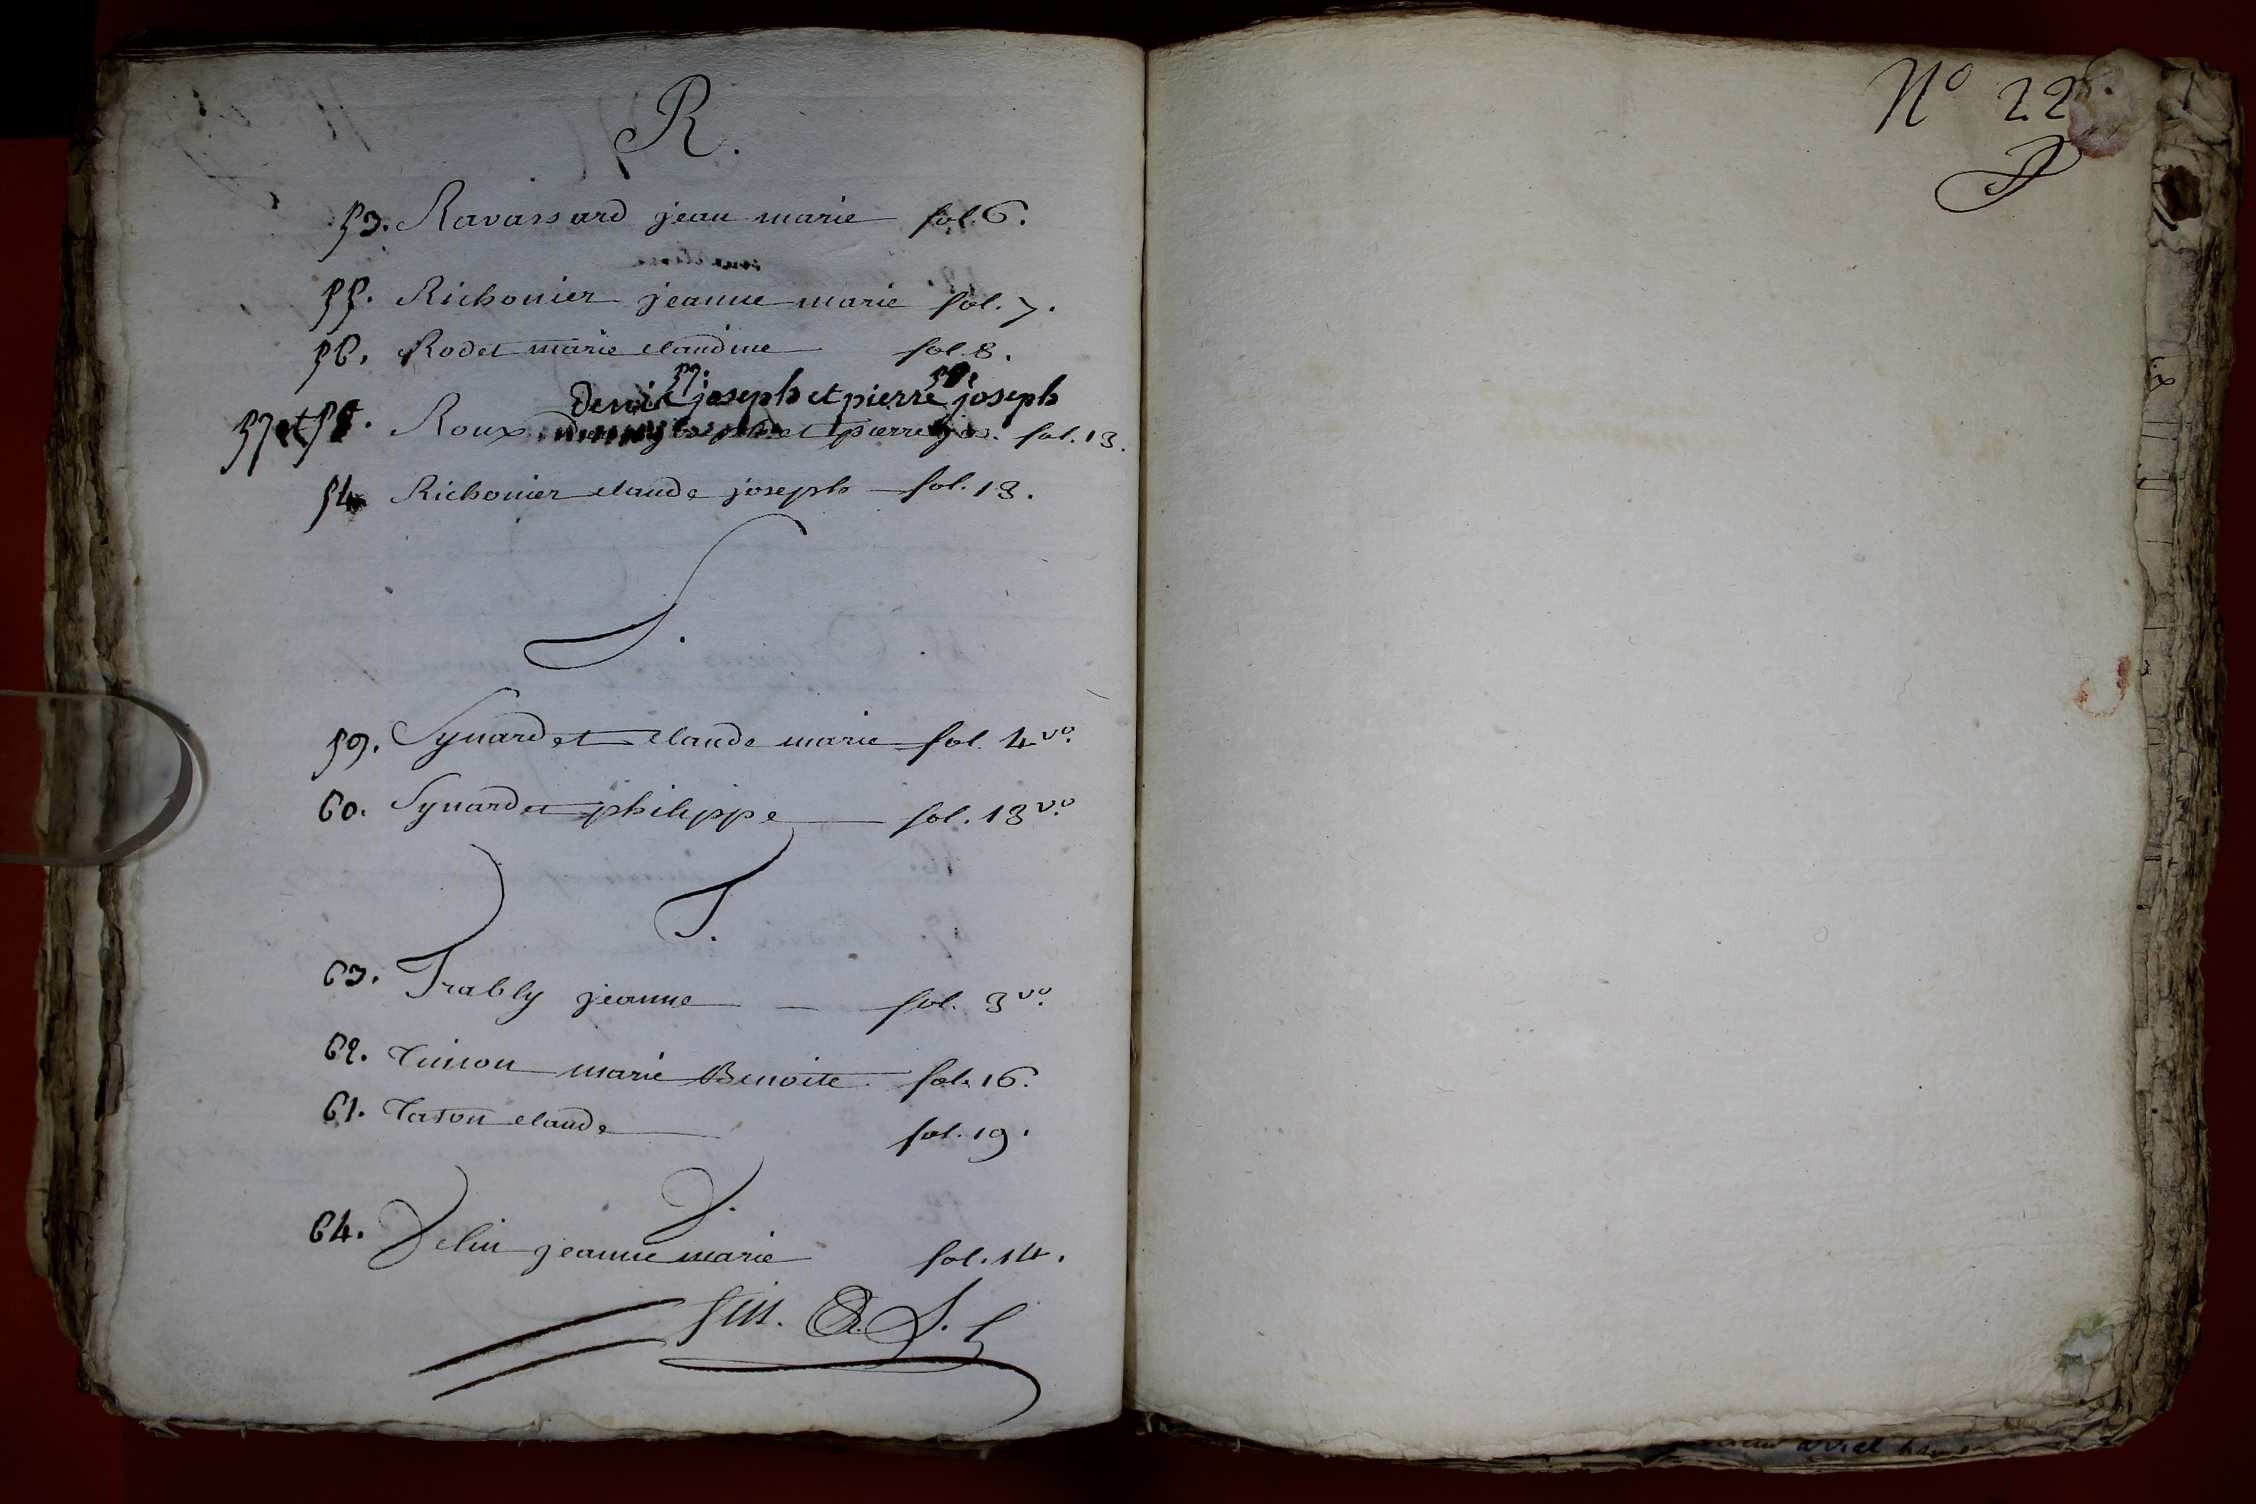 R.
53. Ravassard jean marie fol. 6.
55. Richonier jeanne marie fol. 7.
56. Rodet marie claudine fol. 8.
57. 58.
denis joseph et pierre joseph
57 et 58. Roux joseph et pierre jos. fol. 13.
54 Richonier claude joseph fol. 13.
S.
59. Synardet claude marie fol. 4 vo.
60. Synardet philippe fol. 13 vo.
T.
63. Trably jeanne fol. 3 vo.
62. marie Benoite fol. 16.
61. Tason claude fol. 19.
64. jeanne marie fol. 14.
fin.
No 22